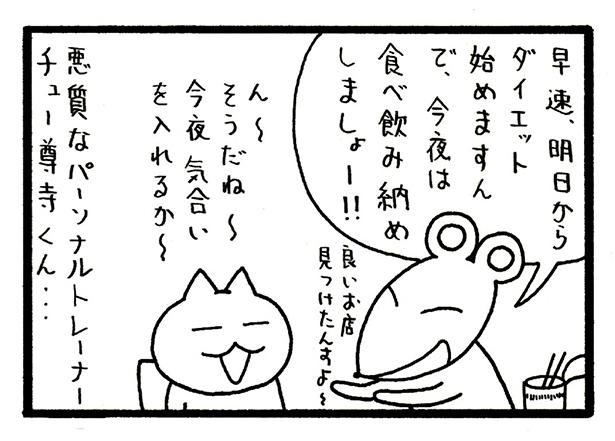 早速、明日から
ダイエット
始めますん
で、今夜は
食べ飲み納め
しましょー!!
良いお店
見つけたんすよ〜
ん〜
そうだね〜
今夜気合い
を入れるか〜
悪質なパーソナルトレーナー
チュー尊寺くん・・・